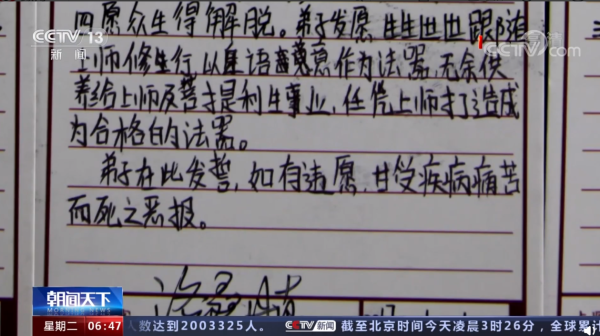 CCTV 13
新闻
CCTV
.com
四愿众生得解脱。弟子发愿生生世世跟随
上师修生行,以身语意作为法器,无余供
养给上师及菩提利生事业,任凭上师打造成
为合格的法器。
弟子在此发誓,如有违愿,甘受疾病痛苦
而死之恶报。
朝闻天下
星期二 06:47
人数达到2003325人。 CCTV新闻 截至北京时间今天凌晨3时26分,全球累计